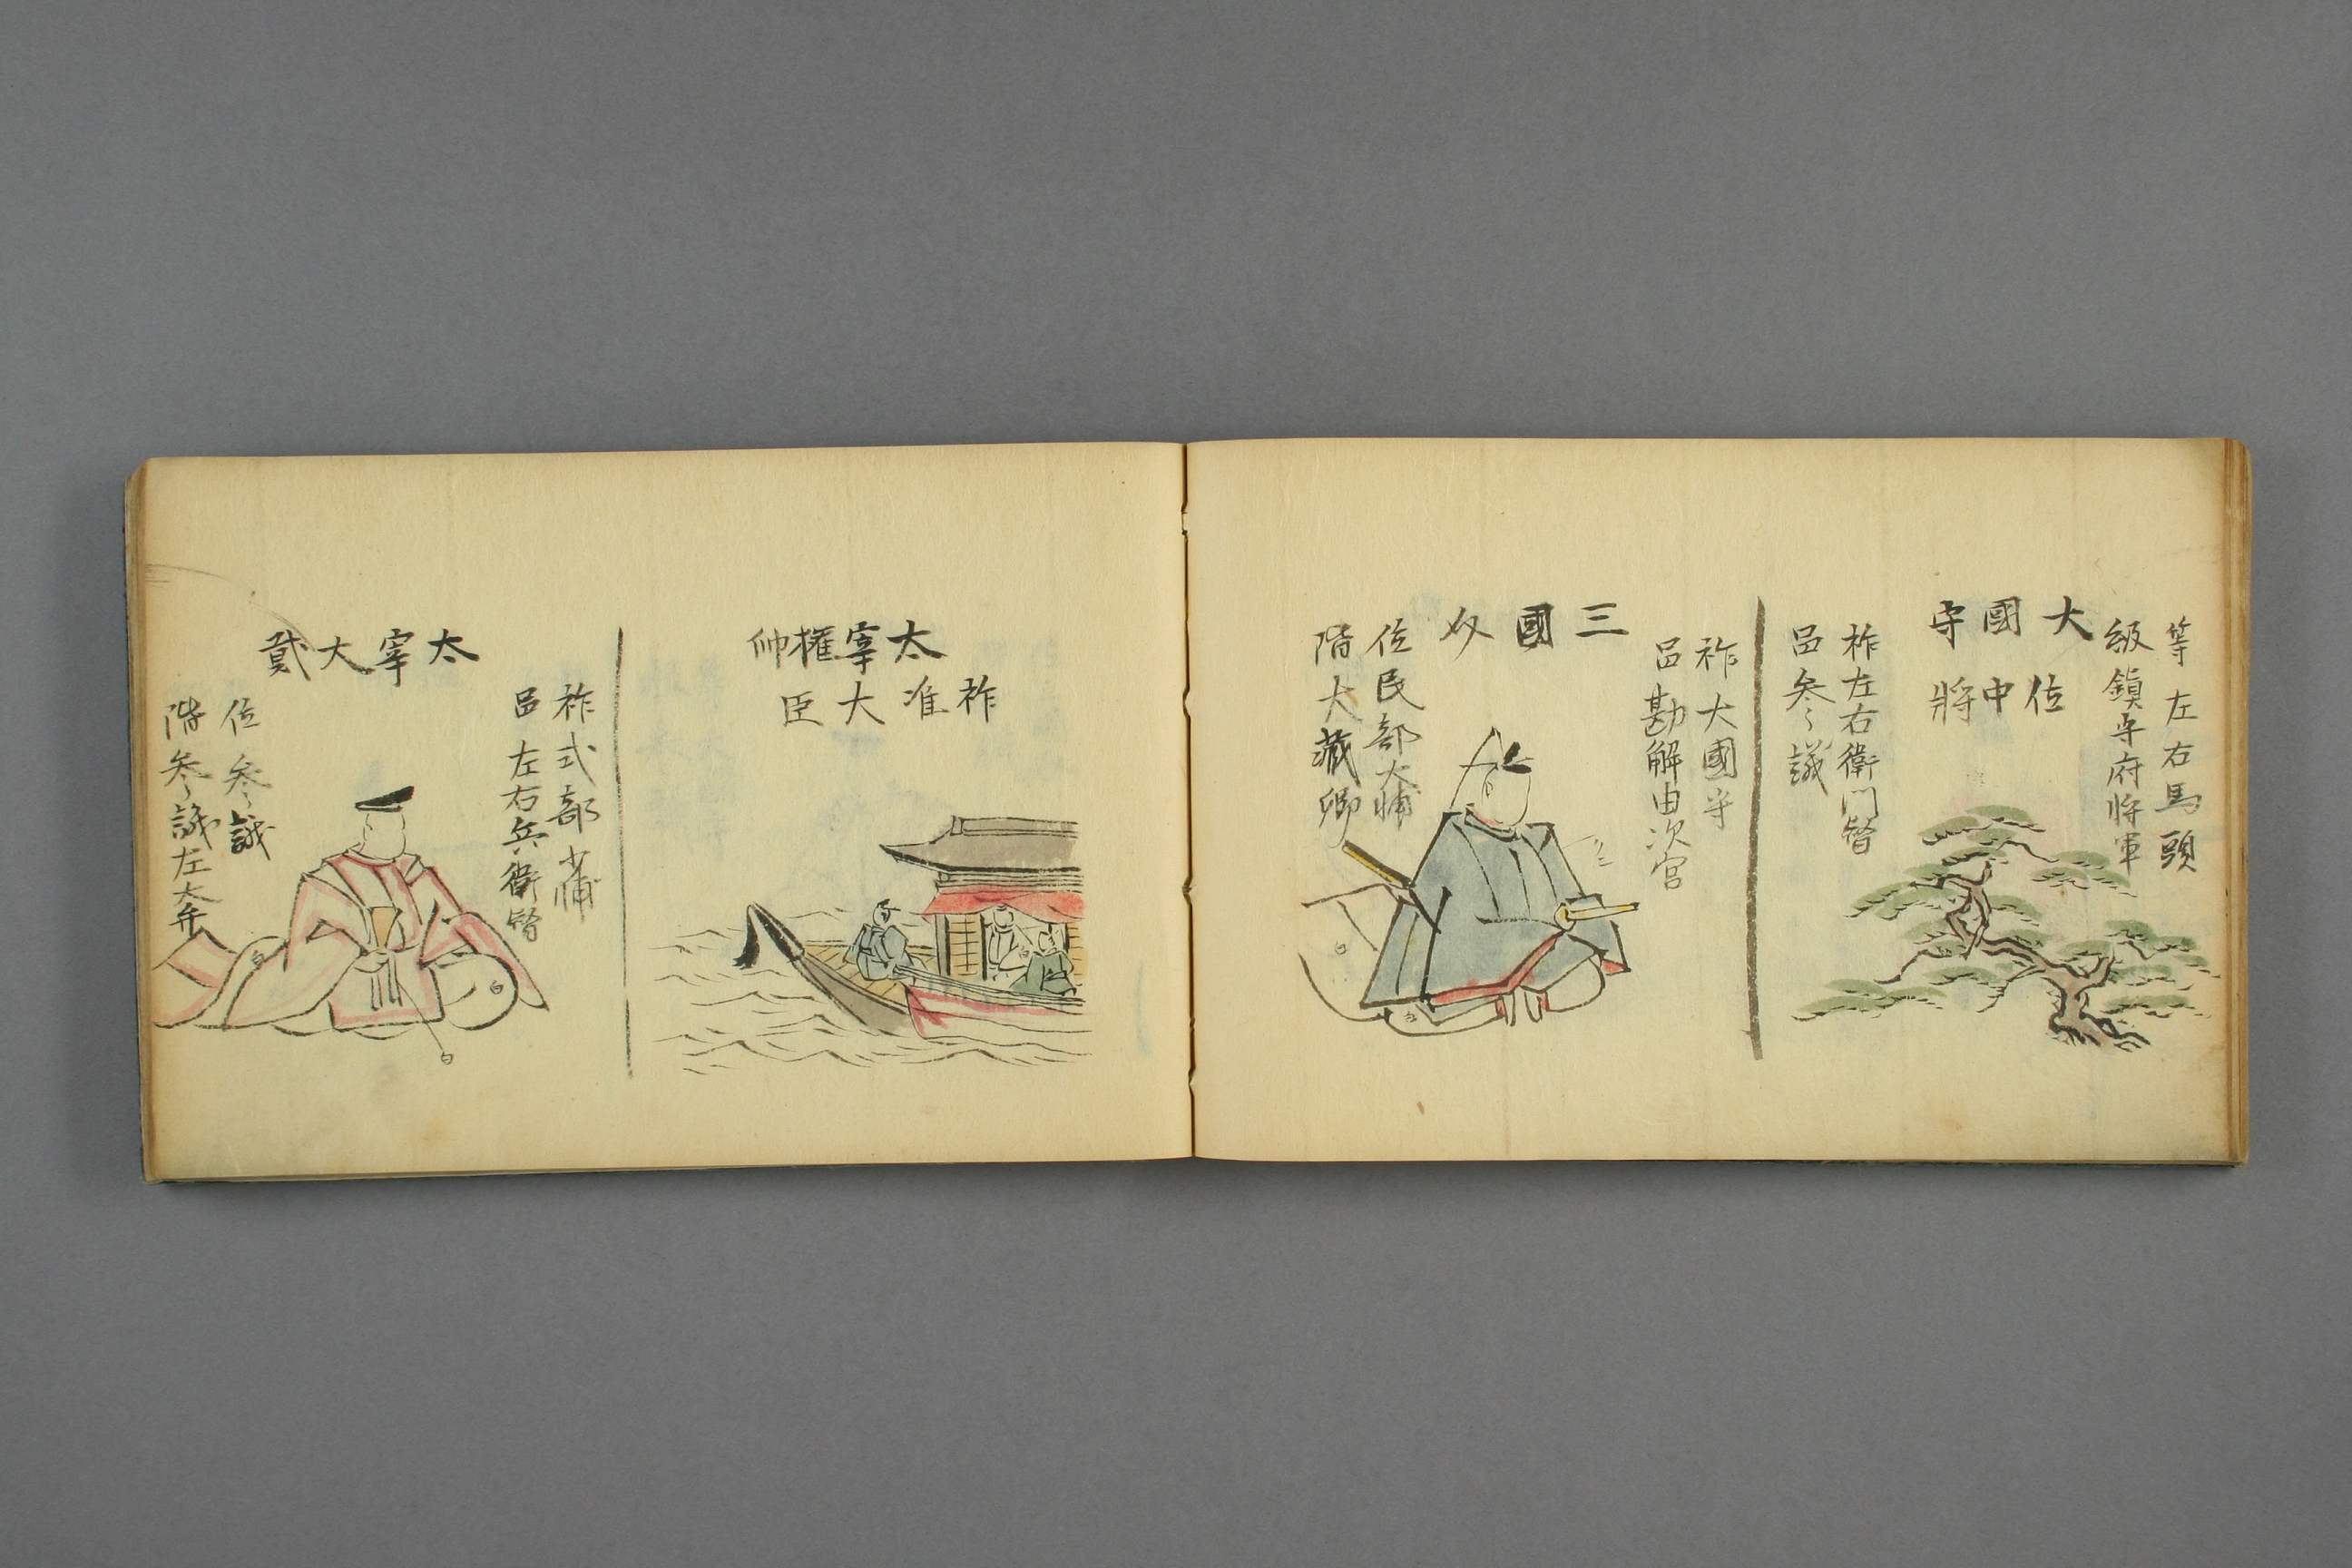 等左右馬頭
級鎮守府将軍
大國守
位中將
祚左右衛門督
邑参議
三國
祚大國守
邑勘解由次官
位民部大輔
階大藏卿
太宰權帥
祚准大臣
太宰大貳
祚式部少輔
邑左右兵衛督
位参議
階参議左大弁